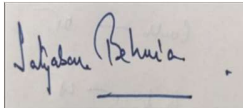 Satyaban Behuria